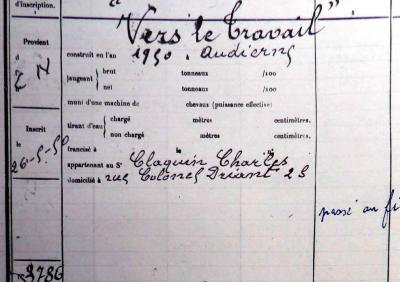 d'inscription.
"Vers le Travail".
Provient
d
Z N
construit en l'an 1950. Audierne
jaugeant brut tonneaux /100
net tonneaux /100
muni d'une machine de chevaux (puissance effective)
tirant d'eau chargé mètres centimètres.
non chargé mètres centimètres.
Inscrit
le
26-5-50
francisé à le
appartenant au Sr Claquin Charles
domicilié à rue Colonel Driant 25
passé au fi
3786